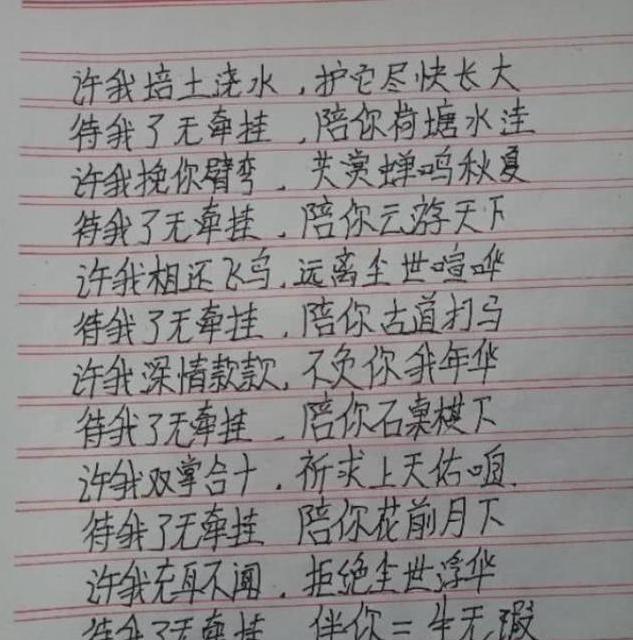 许我培土浇水，护它尽快长大
待我了无牵挂，陪你荷塘水洼
许我挽你臂弯，共赏蝉鸣秋夏
待我了无牵挂，陪你云游天下
许我相还飞鸟，远离尘世喧哗
待我了无牵挂，陪你古道打马
许我深情款款，不负你我年华
待我了无牵挂，陪你石桌棋下
许我双掌合十，祈求上天佑咱.
待我了无牵挂 陪你花前月下
许我充耳不闻，拒绝尘世浮华
待我了无牵挂，伴你=生无瑕